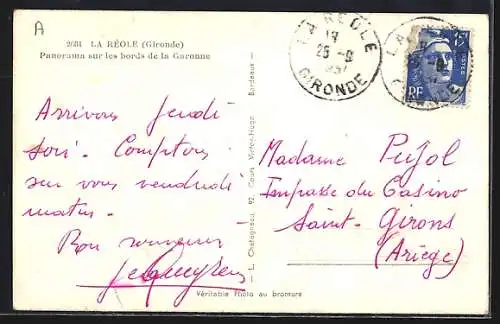 A
2684 LA RÉOLE (Gironde)
Panorama sur les bords de la Garonne
LA REOLE
25-9
GIRONDE
RF
Arrivons Jeudi
soir. Comptons
sur vous vendredi
matin.
Bon souvenir
Madame Pujol
Impasse du Casino
Saint-Girons
(Ariège)
L. Chatagneau, 92, Cours Victor-Hugo - Bordeaux -
Véritable Photo au bromure